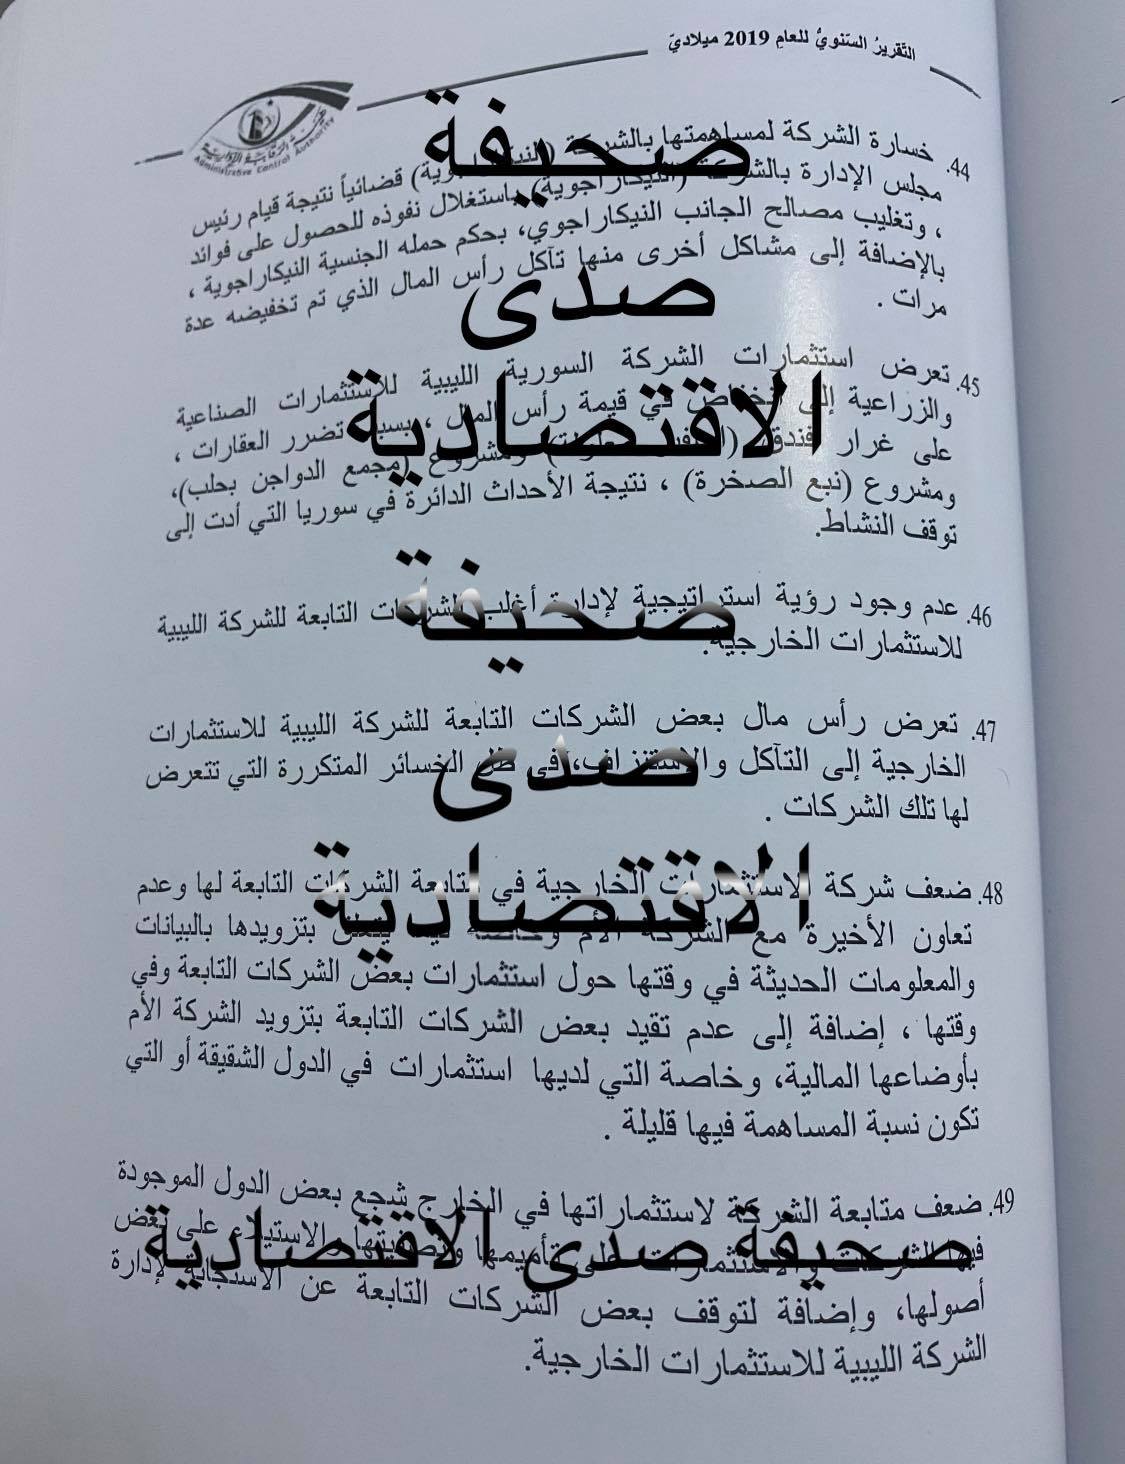 التقريرُ السّنويُّ للعامِ 2019 ميلاديّ
هيئة الرقابة الإدارية
Administrative Control Authority
صحيفة
صدى
الاقتصادية
صحيفة
صدى
الاقتصادية
صحيفة صدى الاقتصادية
44. خسارة الشركة لمساهمتها بالشركة قضائياً نتيجة قيام رئيس
مجلس الإدارة بالشركة (النيكاراجوية) باستغلال نفوذه للحصول على فوائد
، وتغليب مصالح الجانب النيكاراجوي، بحكم حمله الجنسية النيكاراجوية ،
بالإضافة إلى مشاكل أخرى منها تآكل رأس المال الذي تم تخفيضه عدة
مرات .
45. تعرض استثمارات الشركة السورية الليبية للاستثمارات الصناعية
والزراعية إلى انخفاض في قيمة رأس المال ، بسبب تضرر العقارات ،
على غرار فندق ومشروع (مجمع الدواجن بحلب)،
ومشروع (نبع الصخرة) ، نتيجة الأحداث الدائرة في سوريا التي أدت إلى
توقف النشاط.
46. عدم وجود رؤية استراتيجية لإدارة أغلب الشركات التابعة للشركة الليبية
للاستثمارات الخارجية.
47. تعرض رأس مال بعض الشركات التابعة للشركة الليبية للاستثمارات
الخارجية إلى التآكل والاستنزاف، في ظل الخسائر المتكررة التي تتعرض
لها تلك الشركات .
48. ضعف شركة الاستثمارات الخارجية في متابعة الشركات التابعة لها وعدم
تعاون الأخيرة مع الشركة الأم وخاصة فيما يتعلق بتزويدها بالبيانات
والمعلومات الحديثة في وقتها حول استثمارات بعض الشركات التابعة وفي
وقتها ، إضافة إلى عدم تقيد بعض الشركات التابعة بتزويد الشركة الأم
بأوضاعها المالية، وخاصة التي لديها استثمارات في الدول الشقيقة أو التي
تكون نسبة المساهمة فيها قليلة .
49. ضعف متابعة الشركة لاستثماراتها في الخارج شجع بعض الدول الموجودة
فيها الشركات والاستثمارات على تأميمها وتصفيتها والاستيلاء على بعض
أصولها، وإضافة لتوقف بعض الشركات التابعة عن الاستجابة لإدارة
الشركة الليبية للاستثمارات الخارجية.